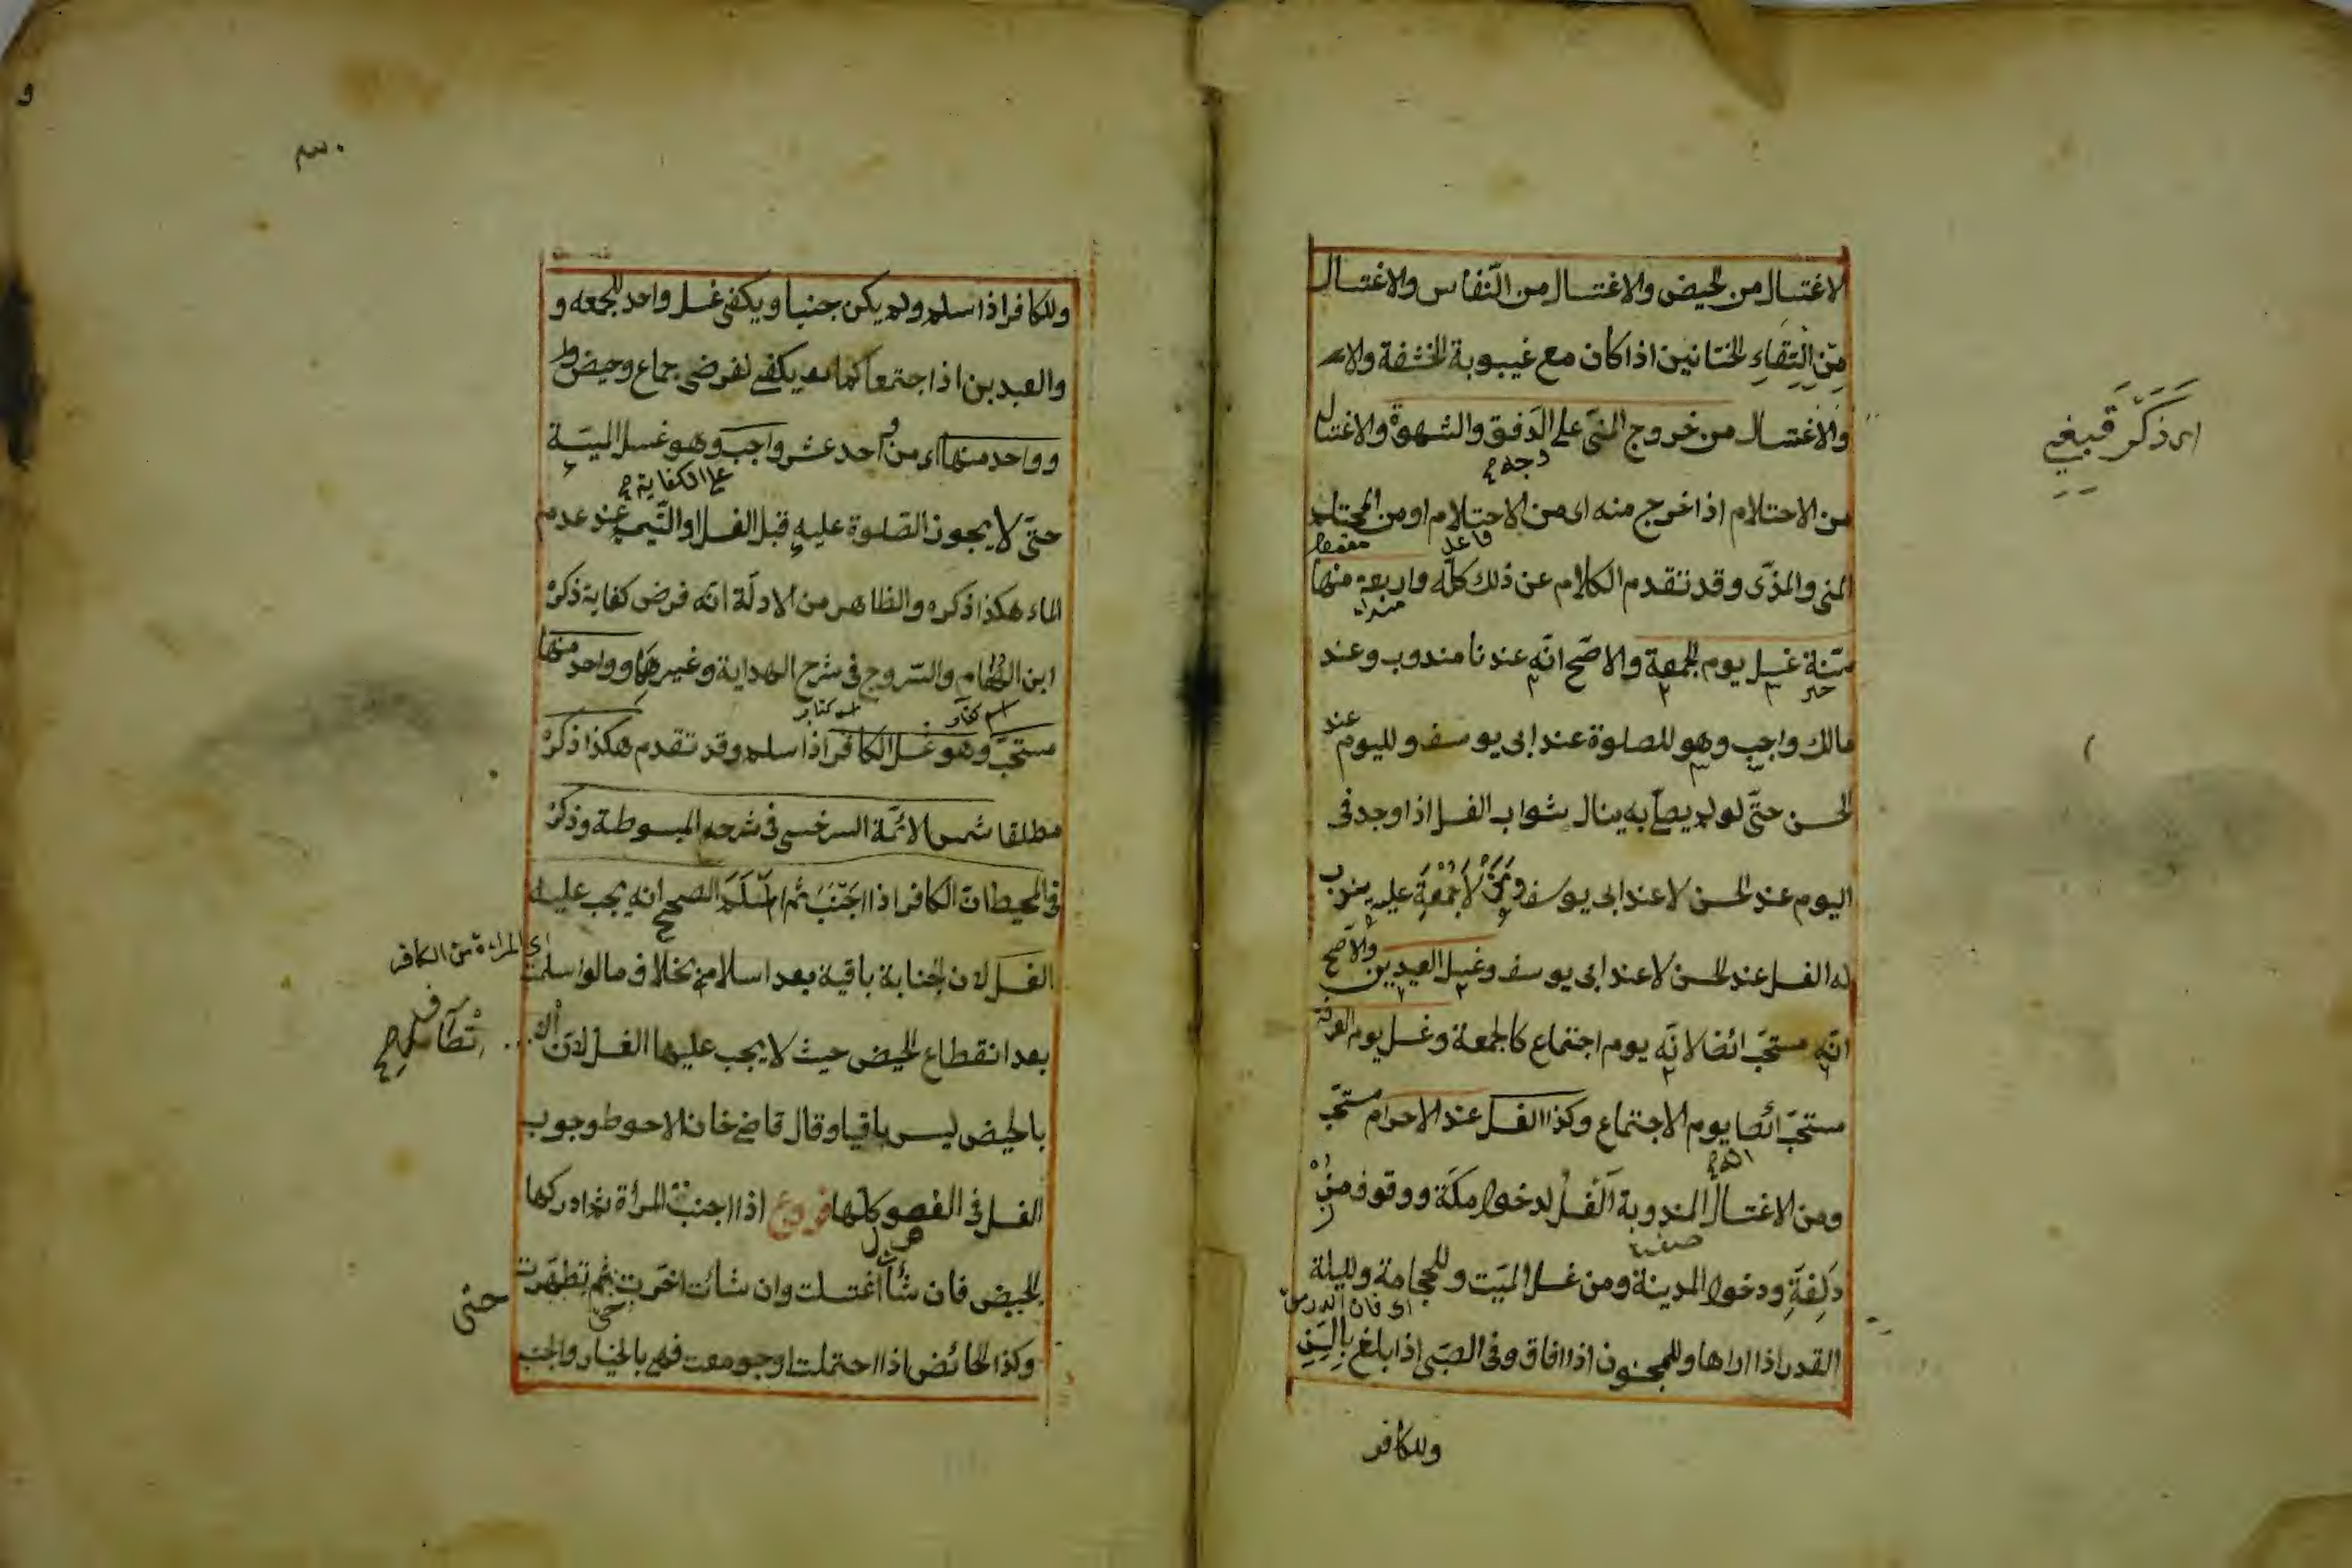 الاغتسال من الحيض والاغتسال من النّفاس والاغتسال
مِن اِلْتِقاءِ الختانين اذا كان مع غيبوبة الحشفة
والاغتسال من خروج المنىّ على الدَفق والشهوة والاغتسال
من الاحتلام اذا خرج منه اى من الاحتلام او من المحتلم
المنى والمذّى وقد تقدم الكلام عن ذلك كلّه واربعة منها
سنّة غسل يوم الجمعة والاصحّ انّه عندنا مندوب وعند
مالك واجب وهو للصلوة عند ابى يوسف ولليوم عند
الحسن حتّى لو لم يصلّ به ينال ثواب الغسل اذا وجد فى
اليوم عند الحسن لا عند ابى يوسف ومَنْ لاَ جُمْعَةَ عليه يندب
له الغسل عند الحسن لا عند ابى يوسف وغسل العيدين والاصح
انّه مستحبّ ائضا لانّه يوم اجتماع كالجمعة وغسل يوم العرفة
مستحبّ ائضا يوم الاجتماع وكذا الغسل عند الاحرام مستحبّ
ومن الاغتسال المندوبة الغسل لدخول مكّة ووقوف مُزْ
دَلِفَةِ ودخول المدينة ومن غسل الميّت وللحجامة ولليلة
القدر اذا اراها وللمجنون اذا افاق وفى الصبّى اذا بلغ بِالسِّنِ
وللكافر
وللكافر اذا اسلم ولم يكن جنبا ويكفى غسل واحد للجمعه و
والعيدين اذا اجتمعا كما يكفى لفرضى جماع وحيض
وواحد منها اى من احد عشر واجب وهو غسل الميّة
على الكفاية
حتّى لا يجوز الصّلوة عليه قبل الغسل او التّيمم عند عدم
الماء هكذا ذكره والظاهر من الادلّة انّه فرض كفاية ذكره
ابن الهُمام والسّروجى فى شرح الهداية وغيرهَما وواحد منها
مستحبّ وهو غسل الكافر اذا اسلم وقد تقدم هكذا ذكره
مطلقا شمس الائمّة السرخسى فى شرحه المبسوطة وذكر
فى المحيط انّ الكافر اذا اجَنَبَ ثُمَّ اسْلَمَ الصحيح انه يجب عليه
اى المراءة من الكافر
الغسل لان الجنابة باقية بعد اسلامه بخلاف ما لو اسلمت
بعد انقطاع الحيض حيث لا يجب عليها الغسل لانّ
بالحيض ليس باقيا وقال قاضى خان الاحوط وجوب
الغسل فى الفصول كلّها فروع اذا اجنبت المرأة ثم ادركها
الحيض فان شأت اغتسلت وان شائت اخّرت تطهّرت
حتى
وكذا الحائض اذا احتلمت او جومعت فهى بالخيار والجنب